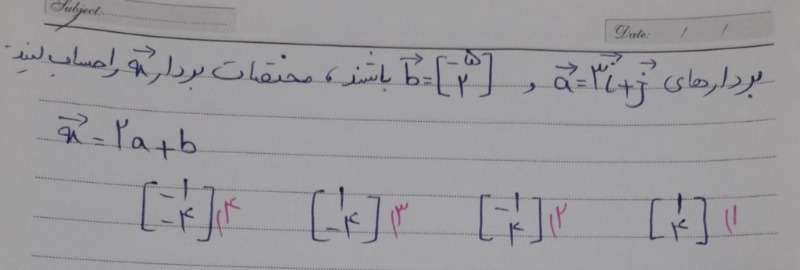 Subject:
Date: / /
بردارهای a⃗ = ۳i⃗ + j⃗ و b⃗ = [-۵ ۲] باشند، مختصات بردار x⃗ را حساب کنید:
x⃗ = ۲a + b
۱) [۱ ۴] ۲) [-۱ ۴] ۳) [۱ -۴] ۴) [-۱ -۴]